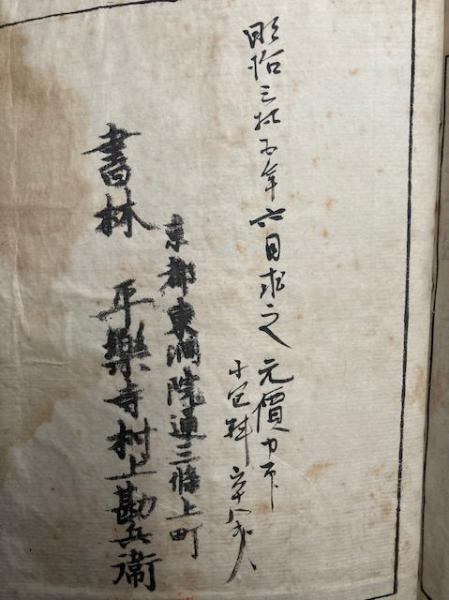 明治三拾五年六月求之 元價
小包料
京都東洞院通三條上町
書林 平樂寺村上勘兵衛